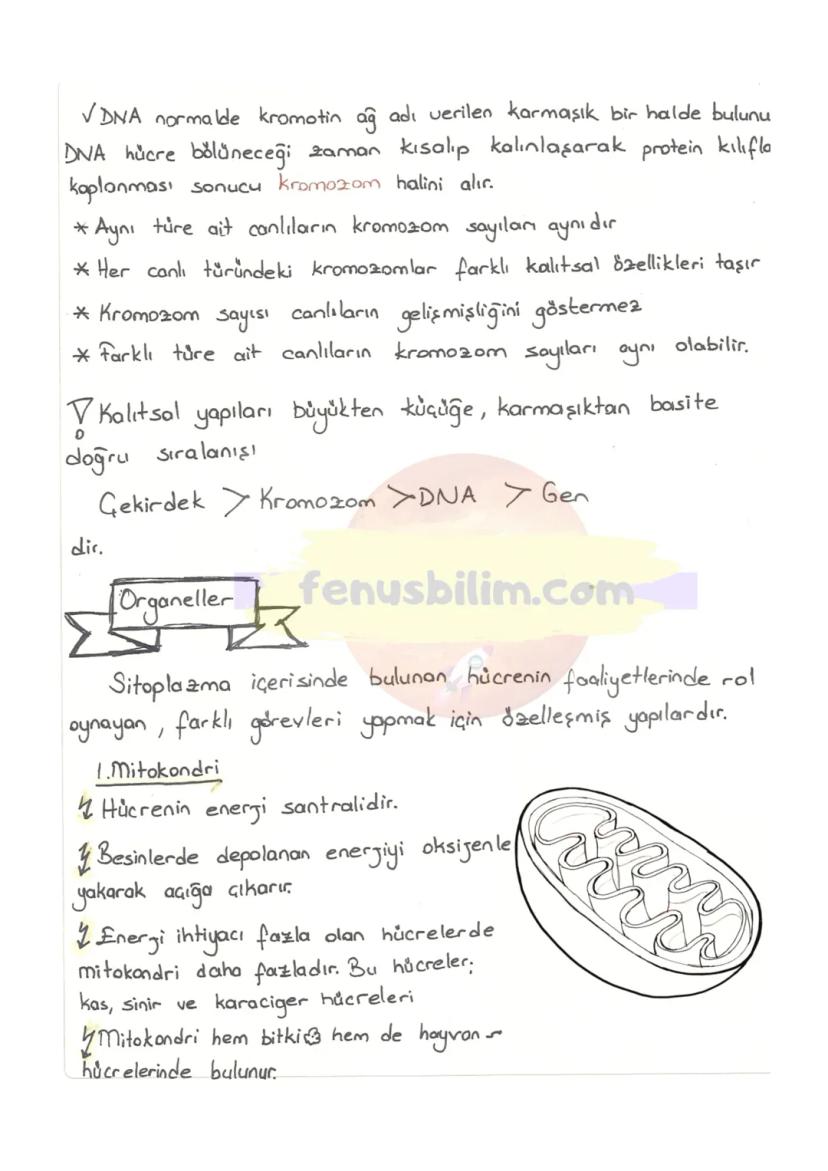 ✓DNA normalde kromotin ağ adı verilen karmaşık bir halde bulunu
DNA hücre bölüneceği zaman kısalıp kalınlaşarak protein kılıfla
kaplanması sonucu kromozom halini alır.
* Aynı türe ait canlıların kromozom sayıları aynıdır
* Her canlı türündeki kromozomlar farklı kalıtsal özellikleri taşır
* Kromozom sayısı canlıların gelişmişliğini göstermez
* Farklı türe ait canlıların kromozom sayıları aynı olabilir.
Kalıtsal yapıları büyükten küçüğe, karmaşıktan basite
doğru sıralanışı
Çekirdek > Kromozom > DNA > Gen
dir.
Organeller
fenusbilim.com
Sitoplazma içerisinde bulunan hücrenin faaliyetlerinde rol
oynayan, farklı görevleri yapmak için özelleşmiş yapılardır.
1.Mitokondri
Hücrenin energi santralidir.
Besinlerde depolanan energiyi oksijenle
yakarak açığa çıkarır.
Energi ihtiyacı fazla olan hücrelerde
mitokondri daha fazladır. Bu hücreler;
kas, sinir ve karaciger hücreleri
Mitokondri hem bitki hem de hayvan
hücrelerinde bulunur.